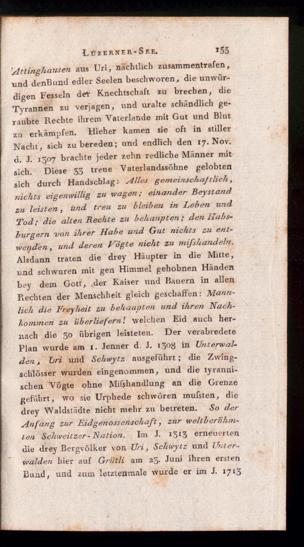 Luzerner-See. 155
Attinghausen aus Uri, nächtlich zusammentrafen,
und den Bund edler Seelen beschworen, die unwür-
digen Fesseln der Knechtschaft zu brechen, die
Tyrannen zu verjagen, und uralte schändlich ge-
raubte Rechte ihrem Vaterlande mit Gut und Blut
zu erkämpfen. Hieher kamen sie oft in stiller
Nacht, sich zu bereden; und endlich den 17. Nov.
d. J. 1307 brachte jeder zehn redliche Männer mit
sich. Diese 33 treue Vaterlandssöhne gelobten
sich durch Handschlag: Alles gemeinschaftlich,
nichts eigenwillig zu wagen; einander Beystand
zu leisten, und treu zu bleiben in Leben und
Tod; die alten Rechte zu behaupten; den Habs-
burgern von ihrer Habe und Gut nichts zu ent-
wenden, und deren Vögte nicht zu mißhandeln.
Alsdann traten die drey Häupter in die Mitte,
und schwuren mit gen Himmel gehobnen Händen
bey dem Gott, der Kaiser und Bauern in allen
Rechten der Menschheit gleich geschaffen: Mann-
lich die Freyheit zu behaupten und ihren Nach-
kommen zu überliefern! welchen Eid auch her-
nach die 30 übrigen leisteten. Der verabredete
Plan wurde am 1. Jenner d. J. 1308 in Unterwal-
den, Uri und Schwytz ausgeführt; die Zwing-
schlösser wurden eingenommen, und die tyranni-
schen Vögte ohne Mißhandlung an die Grenze
geführt, wo sie Urphede schwören mußten, die
drey Waldstädte nicht mehr zu betreten. So der
Anfang zur Eidgenossenschaft, zur weltberühm-
ten Schweitzer-Nation. Im J. 1313 erneuerten
die drey Bergvölker von Uri, Schwytz und Unter-
walden hier auf Grütli am 25. Juni ihren ersten
Bund, und zum letztenmale wurde er im J. 1713